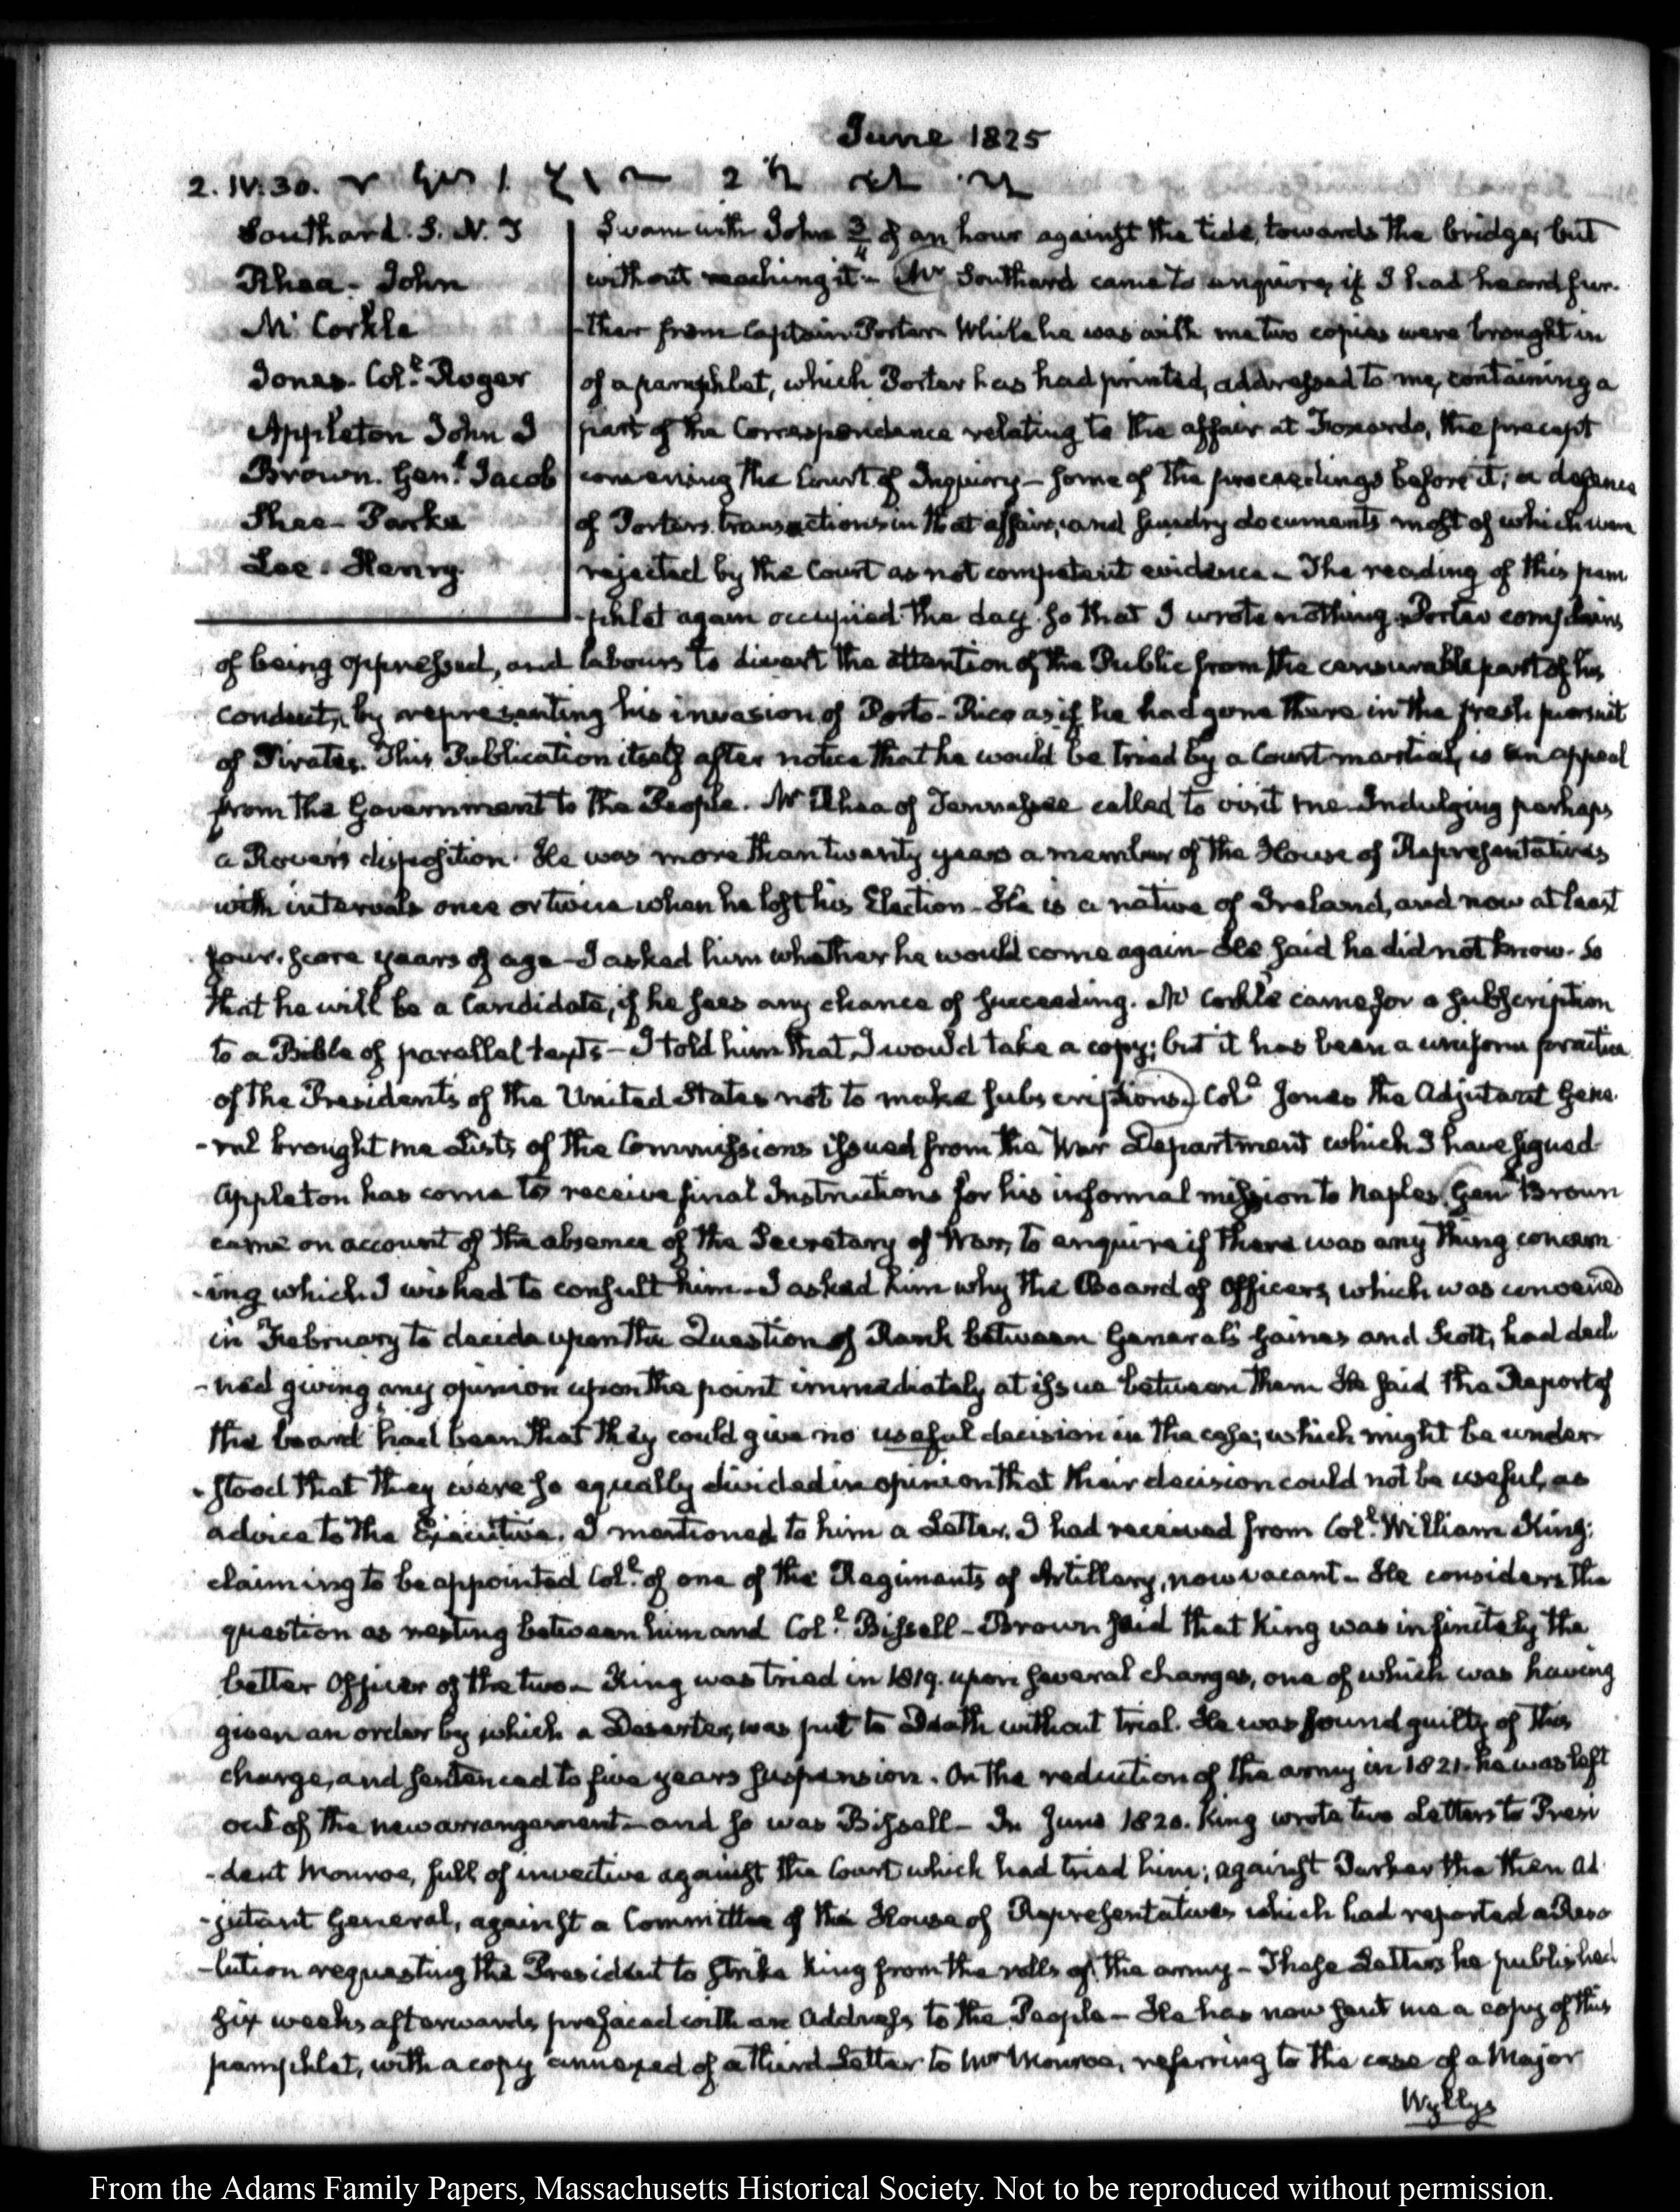 June 1825
2. IV. 30.
Southard. S. N. J
Rhea - John
Mc. Corkle
Jones. Col.l Roger
Appleton John J
Brown. Genl. Jacob
Lee. Henry.
Swam with John 3/4 of an hour against the tide, towards the bridge, but
without reaching it - Mr Southard came to enquire, if I had heard fur-
-ther from Captain Porter. While he was with me two copies were brought in
of a pamphlet, which Porter has had printed, addressed to me, containing a
part of the Correspondence relating to the affair at Foxardo, the precept
convening the Court of Inquiry - some of the proceedings before it; a defence
of Porters transactions in that affair, and sundry documents most of which were
rejected by the Court as not competent evidence - The reading of this pam
-phlet again occupied the day so that I wrote nothing. Porter complains
of being oppressed, and labours to divert the attention of the Public from the censurable part of his
conduct, by representing his invasion of Porto-Rico as if he had gone there in the fresh pursuit
of Pirates. This Publication itself after notice that he would be tried by a Court martial, is an appeal
from the Government to the People. Mr Rhea of Tennessee called to visit me. Indulging perhaps
a Rover's disposition. He was more than twenty years a member of the House of Representatives
with intervals once or twice when he lost his Election - He is a native of Ireland, and now at least
four-score years of age - I asked him whether he would come again - He said he did not know. So
that he will be a Candidate, if he sees any chance of succeeding. Mc Corkle came for a subscription
to a Bible of parallel texts - I told him that I would take a copy; but it has been a uniform practice
of the Presidents of the United States not to make subscriptions. Col.l Jones the Adjutant Gene
-ral brought me Lists of the Commissions issued from the War Department which I have signed
Appleton has come to receive final Instructions for his informal mission to Naples. Genl Brown
came on account of the absence of the Secretary of War, to enquire if there was any thing concern
-ing which I wished to consult him - I asked him why the Board of Officers, which was convened
in February to decide upon the Question of Rank between Generals Gaines and Scott, had decli
-ned giving any opinion upon the point immediately at issue between them. He said the Report of
the board had been that they could give no useful decision in the case; which might be under-
-stood that they were so equally divided in opinion that their decision could not be useful, as
advice to the Executive. I mentioned to him a Letter, I had received from Col.l William King;
claiming to be appointed Col.l of one of the Regiments of Artillery, now vacant - He considers the
question as resting between him and Col.l Bissell - Brown said that King was infinitely the
better Officer of the two - King was tried in 1819. upon several charges, one of which was having
given an order by which a Deserter, was put to Death without trial. He was found guilty of this
charge, and sentenced to five years suspension. On the reduction of the army in 1821. he was left
out of the new arrangement - and so was Bissell - In June 1820. King wrote two Letters to Presi
-dent Monroe, full of invective against the Court which had tried him; against Parker the then Ad
-jutant General, against a Committee of the House of Representatives which had reported a Reso
-lution requesting the President to strike King from the rolls of the army - These Letters he published
six weeks afterwards prefaced with an Address to the People - He has now sent me a copy of this
pamphlet, with a copy annexed of a third Letter to Mr Monroe, referring to the case of a Major
Wyllys
From the Adams Family Papers, Massachusetts Historical Society. Not to be reproduced without permission.